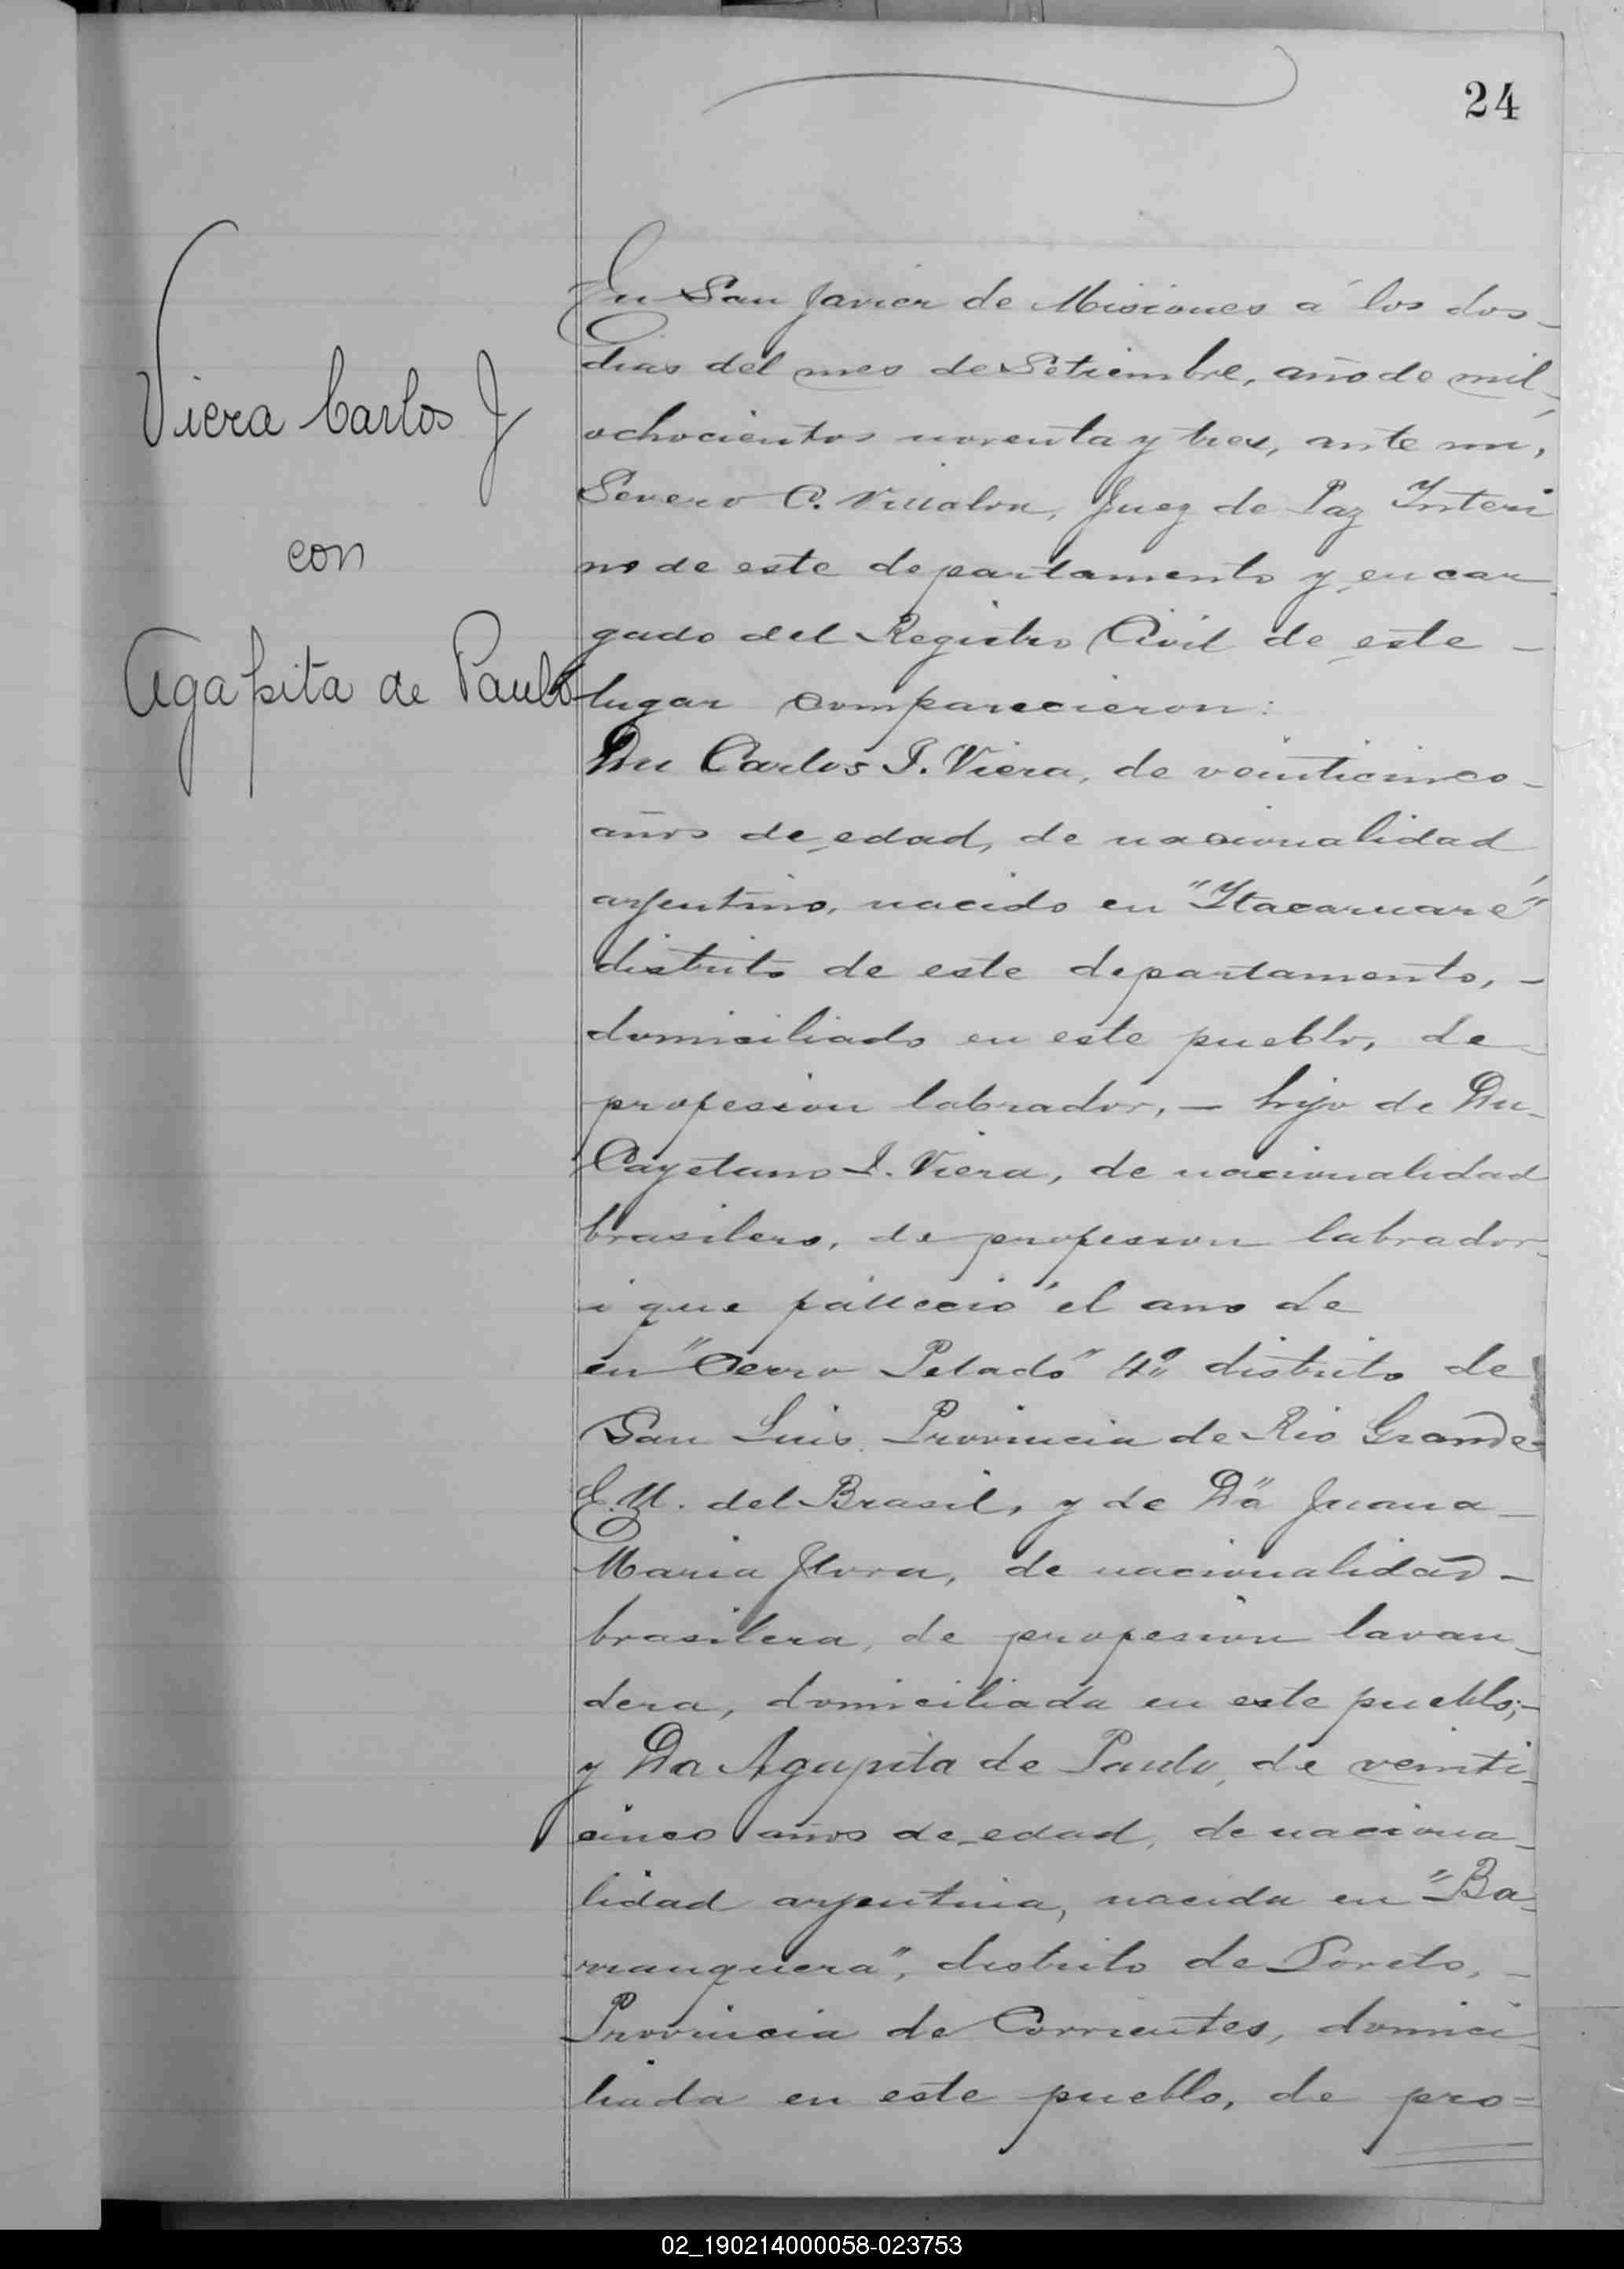 24
Viera Carlos J
con
Agapita de Paulo
En San Javier de Misiones á los dos
dias del mes de Setiembre, año de mil
ochocientos noventa y tres, ante mí,
Severo C. Villalon, Juez de Paz Interi
no de este departamento y encar
gado del Registro Civil de este
lugar comparecieron:
Dn Carlos J. Viera, de veinticinco
años de edad, de nacionalidad
argentino, nacido en "Itacaruaré"
distrito de este departamento,
domiciliado en este pueblo, de
profesion labrador, – hijo de Dn
Cayetano J. Viera, de nacionalidad
brasilero, de profesion labrador
i que falleció el ano de
en "Cerro Pelado" 4º distrito de
San Luis Provincia de Rio Grande
E.U. del Brasil, y de Dª Juana
Maria Flora, de nacionalidad
brasilera, de profesion lavan
dera, domiciliada en este pueblo;
y Da Agapita de Paulo, de veinti
cinco años de edad, de naciona
lidad argentina, nacida en "Ba
rranquera", distrito de Loreto,
Provincia de Corrientes, domici
liada en este pueblo, de pro=
02_190214000058-023753